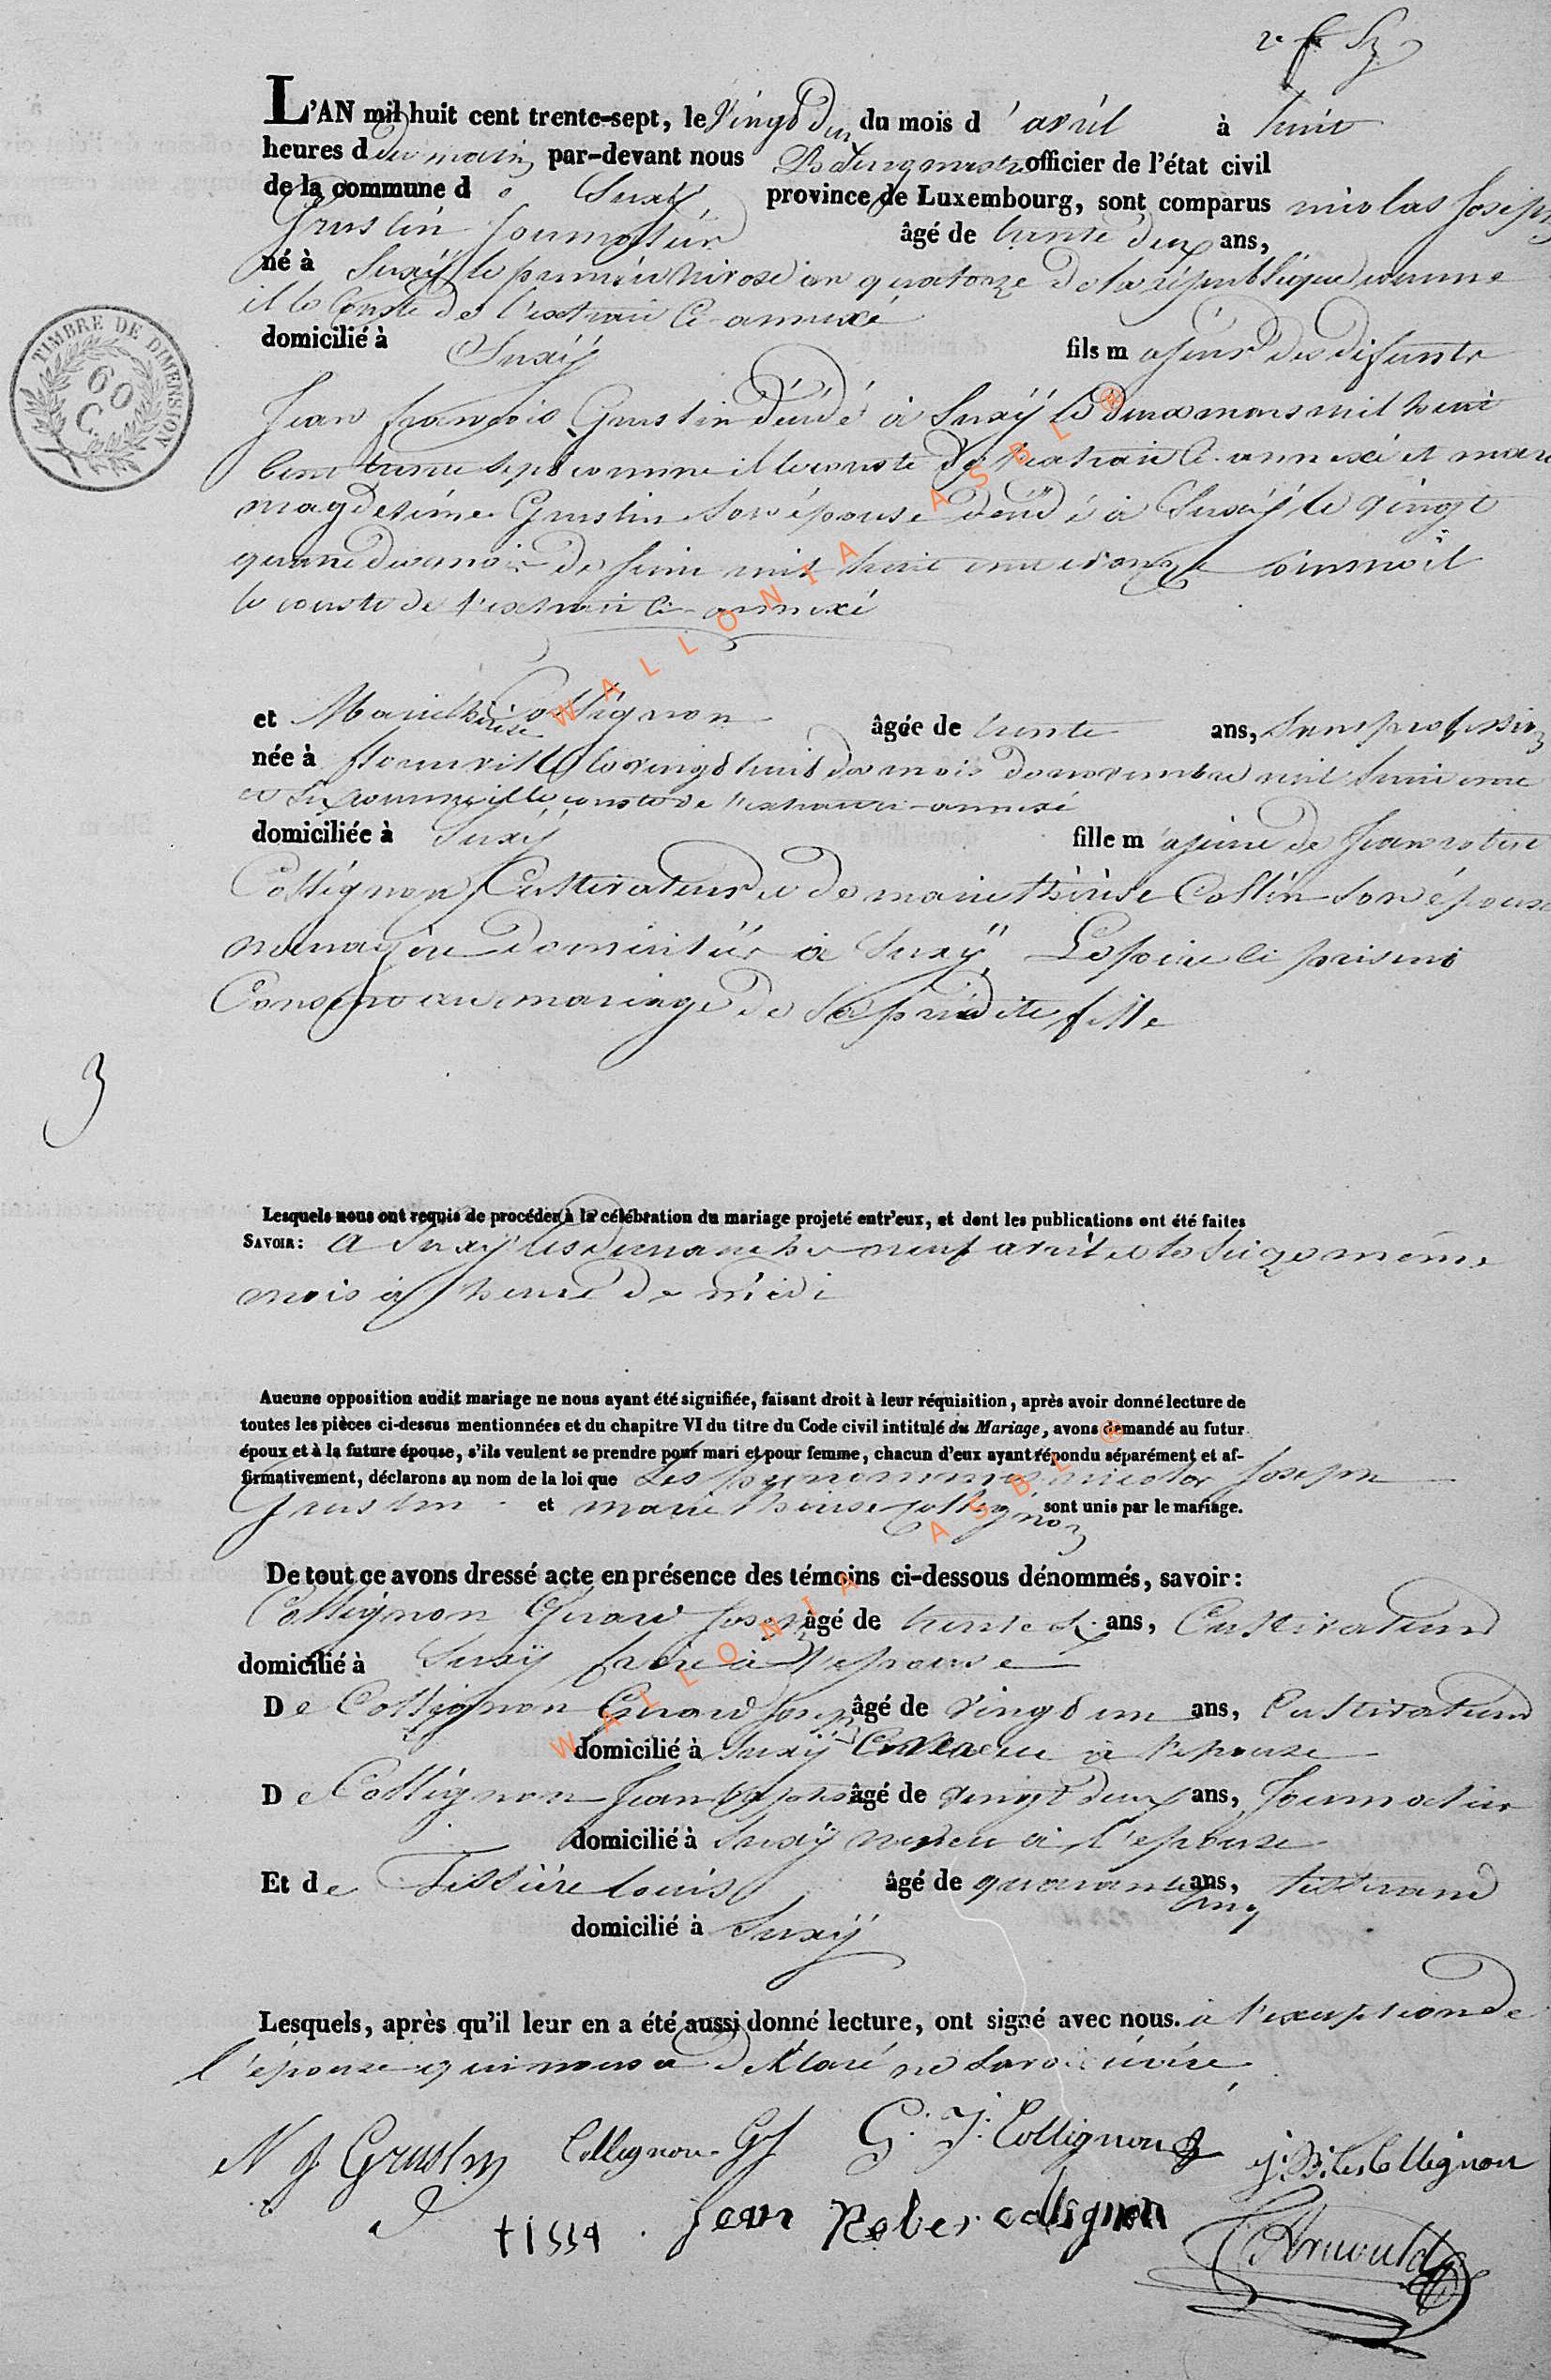 2e f Sz
L'AN mil huit cent trente-sept, le vingt du mois d'avril à huit
heures d du matin par-devant nous Bourgmestre officier de l'état civil
de la commune de Suxÿ province de Luxembourg, sont comparus nicolas Joseph
Gruslin Journalier âgé de trente deux ans,
né à Suxÿ le premier Nivose an quatorze de la république comme
il le Conste de l'extrait Ci-annexé
domicilié à Suxÿ fils majeur de difunts
Jean françois Gruslin décédé à Suxÿ le deux mars mil huit
Cent trente sept comme il le conste de l'extrait Ci-annexé et marie
magdeleine Gruslin son épouse décédé à Suxÿ le vingt
du mois de Juin mil huit cent onze comme il
le conste de l'extrait Ci-annexé
et Marie thérèse Collignon âgée de trente ans, sans profession
née à florenville le vingt huit du mois de novembre mil huit cent
et Six comme il le conste de l'extrait ci-annexé
domiciliée à Suxÿ fille majeure de Jean robert
Collignon Cultivateur et de marie thérèse Collin son épouse
menagère domiciliés à Suxÿ, Le père ci présent
Consent au mariage de sa prédite fille
3
Lesquels nous ont requis de procéder à la célébration du mariage projeté entr'eux, et dont les publications ont été faites
SAVOIR: A Suxÿ les dimanche neuf avril et le Seize même
mois à l'heure de midi
Aucune opposition audit mariage ne nous ayant été signifiée, faisant droit à leur réquisition, après avoir donné lecture de
toutes les pièces ci-dessus mentionnées et du chapitre VI du titre du Code civil intitulé du Mariage, avons demandé au futur
époux et à la future épouse, s'ils veulent se prendre pour mari et pour femme, chacun d'eux ayant répondu séparément et af-
firmativement, déclarons au nom de la loi que Les prénommés nicolas Joseph
Gruslin et marie thérèse Collignon sont unis par le mariage.
De tout ce avons dressé acte en présence des témoins ci-dessous dénommés, savoir:
Collignon Girard Joseph âgé de trente ans, Cultivateur
domicilié à Suxÿ frère à l'épouse
De Collignon Girard Joseph âgé de vingt un ans, Cultivateur
domicilié à Suxÿ à l'épouse
De Collignon Jean Baptiste âgé de vingt deux ans, Journalier
domicilié à Suxÿ neveu à l'epouse
Et de Tissière Louis âgé de quarante cinq ans, tisserand
domicilié à Suxÿ
Lesquels, après qu'il leur en a été aussi donné lecture, ont signé avec nous. à l'exception de
l'épouse qui nous a déclaré ne savoir écrire
N J Gruslin Collignon. GJ G. J. Collignon J: B: Collignon
tisse Jean Rober collignon Arnould
TIMBRE DE DIMENSION
60
C.
WALLONIA ASBL ®
WALLONIA ASBL ®